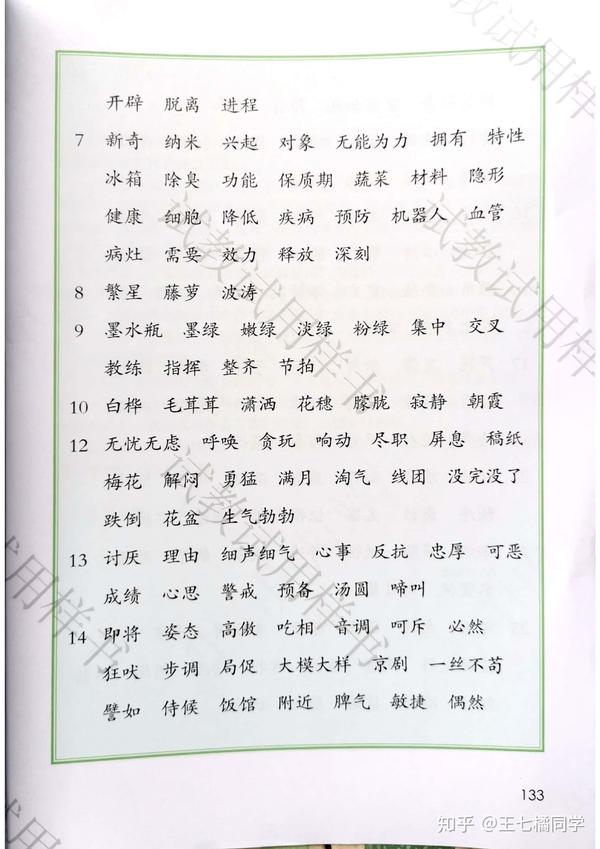 开辟 脱离 进程
7 新奇 纳米 兴起 对象 无能为力 拥有 特性
冰箱 除臭 功能 保质期 蔬菜 材料 隐形
健康 细胞 降低 疾病 预防 机器人 血管
病灶 需要 效力 释放 深刻
8 繁星 藤萝 波涛
9 墨水瓶 墨绿 嫩绿 淡绿 粉绿 集中 交叉
教练 指挥 整齐 节拍
10 白桦 毛茸茸 潇洒 花穗 朦胧 寂静 朝霞
12 无忧无虑 呼唤 贪玩 响动 尽职 屏息 稿纸
梅花 解闷 勇猛 满月 淘气 线团 没完没了
跌倒 花盆 生气勃勃
13 讨厌 理由 细声细气 心事 反抗 忠厚 可恶
成绩 心思 警戒 预备 汤圆 啼叫
14 即将 姿态 高傲 吃相 音调 呵斥 必然
狂吠 步调 局促 大模大样 京剧 一丝不苟
譬如 侍候 饭馆 附近 脾气 敏捷 偶然
133
知乎 @王七橘同学
试教试用样书
试教试用样书
试教试用样书
试教试用样书